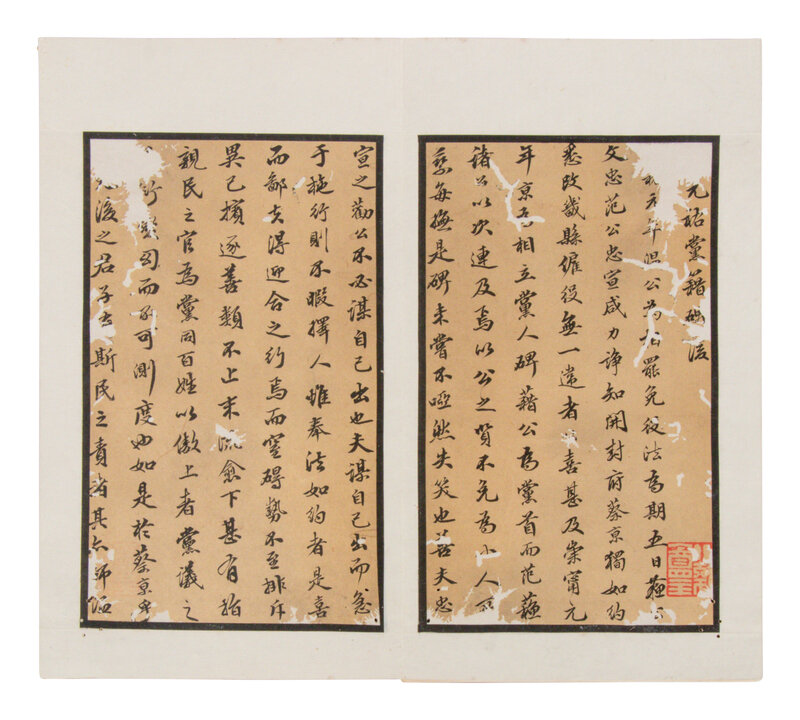 元祐黨籍碑後
元年溫公為相罷免役法為期五日蘇公
文忠范公忠宣咸力諍知開封府蔡京獨如約
悉改畿縣僱役無一違者公喜甚及崇甯元
年京為相立黨人碑籍公為黨首而范蘇
諸公以次連及焉以公之賢不免為小人所
每撫是碑未嘗不啞然失笑也若夫忠
宣之勸公不必謀自己出也夫謀自己出而急
于施行則不暇擇人雖奉法如約者是喜
而鄙夫得迎合之行焉而窒礙勢不至排斥
異己擯逐善類不止末流愈下甚有指
親民之官為黨同百姓以傲上者黨議之
而不可測度也如是於蔡京乎
後之君子士斯民之責者其亦師溫